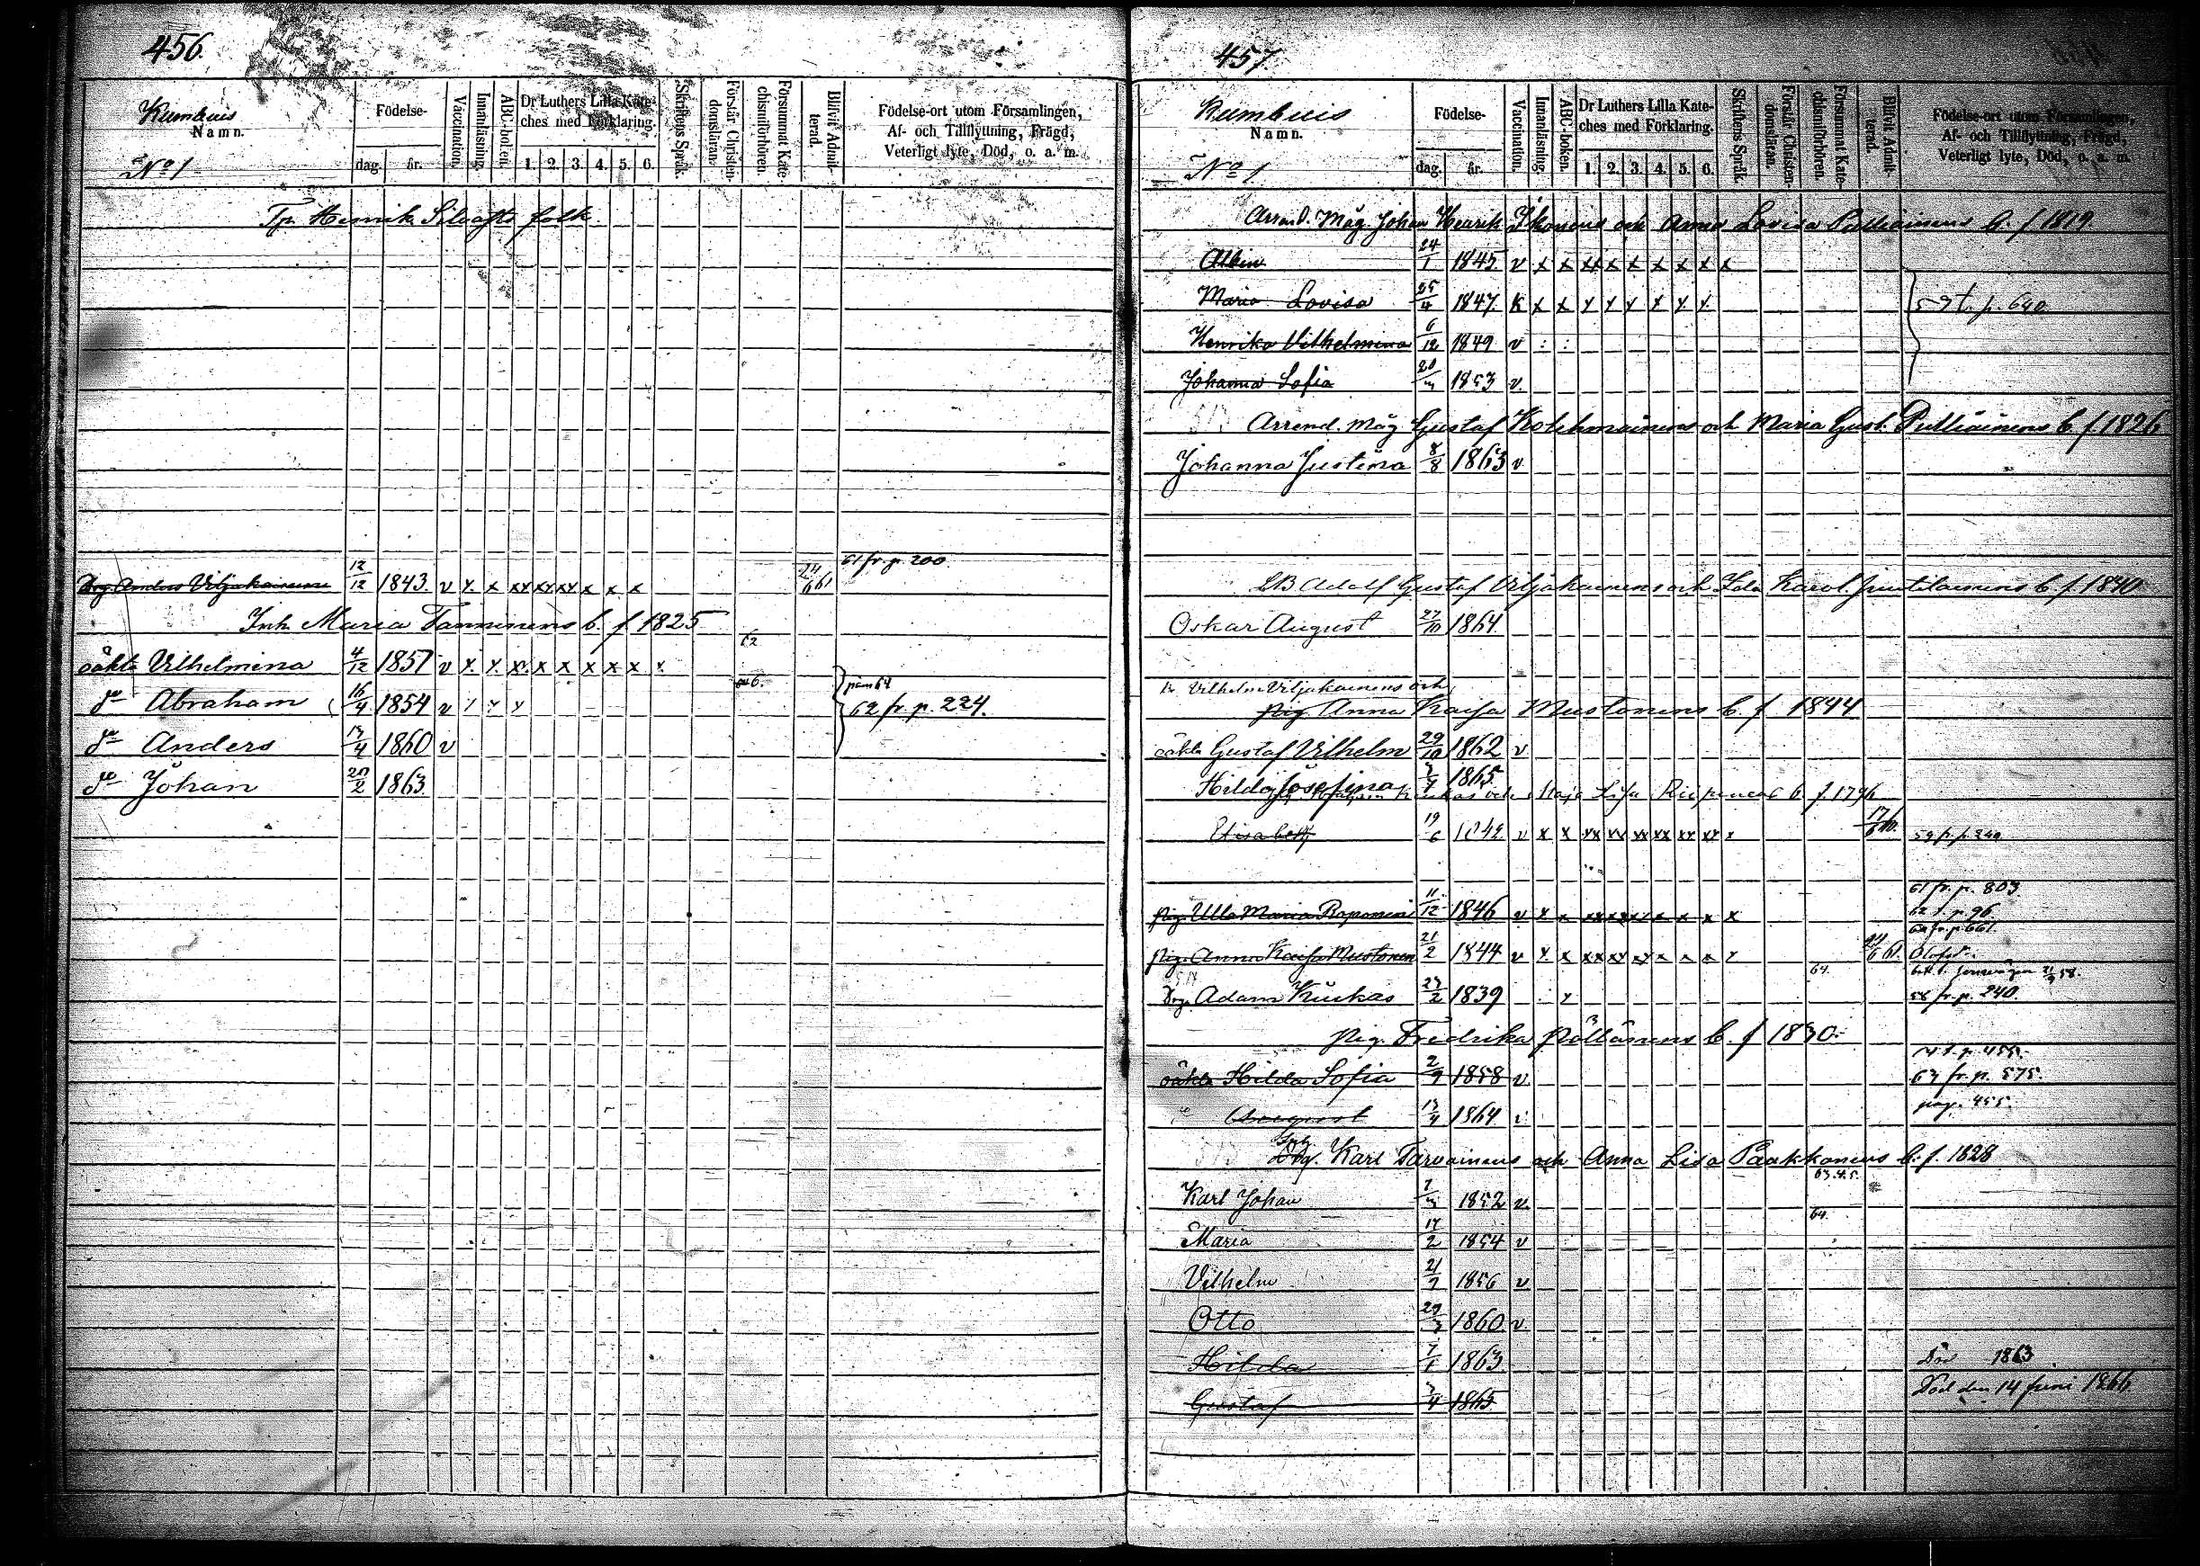 456.
Kumbuis
Namn.
Födelse-
dag. år.
Vaccination.
Innanläsning.
ABC-boken.
Dr Luthers Lilla Kate-
ches med Förklaring.
1. 2. 3. 4. 5. 6.
Skriftens Språk.
Förstår Christen-
domsläran.
Försummat Kate-
chismiförhören.
Blifvit Admit-
terad.
Födelse-ort utom Församlingen,
Af- och Tillflyttning, Frägd,
Veterligt lyte, Död, o. a. m.
No 1
Tp. Henrik Silvasts folk
61 fr. p. 200
Drg. Anders Viljakainen 12/12 1843. v x x xx xx xx x x x 24/6 61
Inh. Maria Tanninens b. f 1825
62
oäkta Vilhelmina 4/12 1851 v x x x x x x x x x
do Abraham 16/4 1854 v x x x 62 fr. p. 224.
do Anders 13/4 1860 v
do Johan 20/2 1863
457.
Kumbuis
Namn.
Födelse-
dag. år.
Vaccination.
Innanläsning.
ABC-boken.
Dr Luthers Lilla Kate-
ches med Förklaring.
1. 2. 3. 4. 5. 6.
Skriftens Språk.
Förstår Christen-
domsläran.
Försummat Kate-
chismiförhören.
Blifvit Admit-
terad.
Födelse-ort utom Församlingen,
Af- och Tillflyttning, Frägd,
Veterligt lyte, Död, o. a. m.
No 1
Arrend. Måg Johan Henrik Ikonens och Anna Lovisa Pulliainens b. f 1819.
Albin 24/1 1845 v x x xx x x x x x x
Maria Lovisa 25/4 1847. K x x x x x x x x 59 t. p. 640
Henrika Vilhelmina 6/12 1849 v : :
Johanna Sofia 20/3 1853 v
Arrend. Måg Gustaf Kolehmainens och Maria Gust. Pulliainens b f. 1826
Johanna Justina 8/8 1863 v
LB Adolf Gustaf Viljakainens och Ida Karol. Juntilainens b. f. 1840
Oskar August 27/10 1864
Vilhelm Viljakainens och
Pig. Anna Kaisa Mustonens b. f 1844
oäkta Gustaf Vilhelm 29/10 1862 v
Hilda Josefina 3/4 1865
Kiukas och Maja Lisa b. f. 1796
Elisabeth 19/6 1842 v x x xx xx xx xx xx xx x 17/6 59 fr. p. 240
61 fr. p. 803
Pig. Ulla Maria Roponen 11/12 1846 v x x xx xx xx x x x x 62 t. p. 96.
62 fr. p. 661.
Pig. Anna Kaisa Mustonen 21/2 1844 v x x xx xx xx x x x x 24/6 61.
64.
Drg. Adam Kiukas 23/2 1839 x 58 fr. p. 240.
Pig. Fredrika Pöllänens b. f 1830.
t. p. 455.
oäkta Hilda Sofia 2/9 1858 v 63 fr. p. 575.
August 13/4 1864 v pag. 455.
Karl Tarvainens och Anna Lisa Paakkonens b. f. 1828
63. 4. 5.
Karl Johan 7/3 1852 v.
64.
Maria 17/2 1854 v
Vilhelm 21/9 1856 v
Otto 29/3 1860 v
Hilda 7/1 1863 Död 1863
Gustaf 3/4 1865 Död den 14 Juni 1866